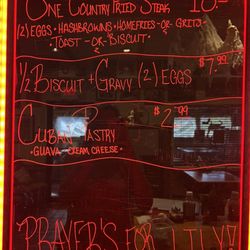 ONE COUNTRY FRIED STEAK
(2) EGGS • HASHBROWNS • HOMEFRIES - OR - GRITS •
TOAST - OR - BISCUIT •
1/2 BISCUIT + GRAVY (2) EGGS $7.99
CUBAN PASTRY $2.99
• GUAVA - CREAM CHEESE •
PRAYER'S FOR